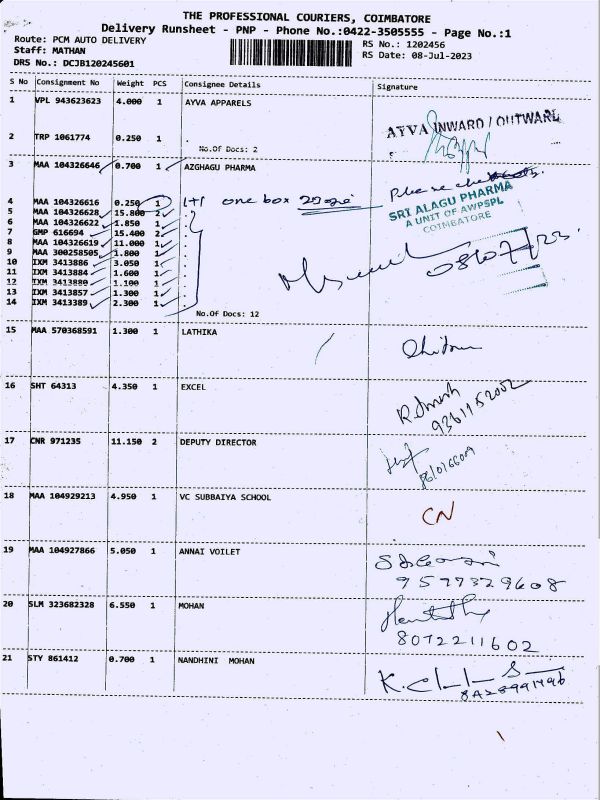 THE PROFESSIONAL COURIERS, COIMBATORE
Delivery Runsheet - PNP - Phone No.:0422-3505555 - Page No.:1
Route: PCM AUTO DELIVERY
Staff: MATHAN
DRS No.: DCJB120245601
RS No.: 1202456
RS Date: 08-Jul-2023
S No Consignment No Weight PCS Consignee Details Signature
1 VPL 943623623 4.000 1 AYVA APPARELS
AYVA INWARD / OUTWARD
2 TRP 1061774 0.250 1 .
No.Of Docs: 2
3 MAA 104326646 0.700 1 AZGHAGU PHARMA
4 MAA 104326616 0.250 1 1+1 one box
SRI ALAGU PHARMA
A UNIT OF AWPSPL
COIMBATORE
5 MAA 104326628 15.800 2 .
6 MAA 104326622 1.850 1 .
7 GMP 616694 15.400 2 .
8 MAA 104326619 11.000 1 .
9 MAA 300258505 1.800 1 .
10 IXM 3413886 3.050 1 .
11 IXM 3413884 1.600 1 .
12 IXM 3413880 1.100 1 .
13 IXM 3413857 1.300 1 .
14 IXM 3413389 2.300 1 .
08/07/23.
No.Of Docs: 12
15 MAA 570368591 1.300 1 LATHIKA
16 SHT 64313 4.350 1 EXCEL
9361152002
17 CNR 971235 11.150 2 DEPUTY DIRECTOR
18 MAA 104929213 4.950 1 VC SUBBAIYA SCHOOL
CN
19 MAA 104927866 5.050 1 ANNAI VOILET
9577329608
20 SLM 323682328 6.550 1 MOHAN
8072211602
21 STY 861412 0.700 1 NANDHINI MOHAN